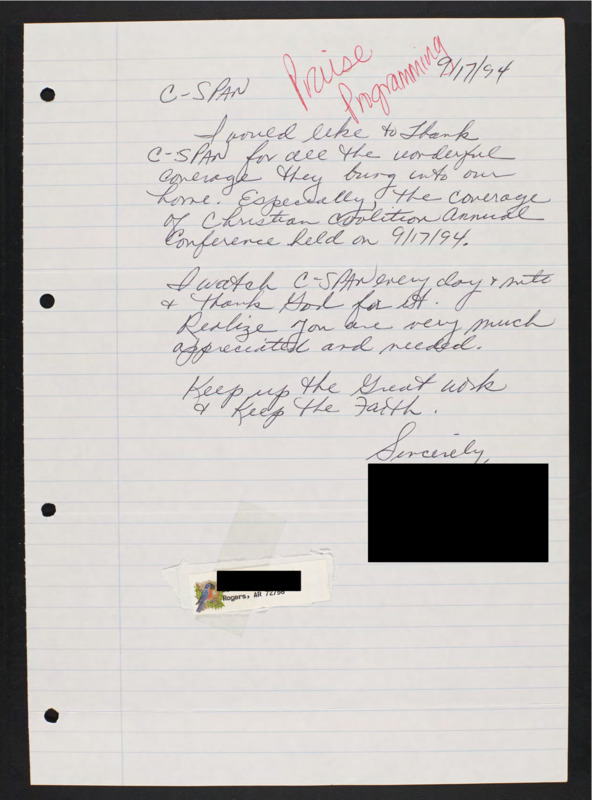 Praise
Programming
9/17/94
C-SPAN
I would like to Thank
C-SPAN for all the wonderful
coverage they bring into our
home. Especially, the coverage
of Christian Coolition Annual
Conference held on 9/17/94.
I watch C-SPAN every day & nite
& Thank God for it.
Realize you are very much
appreciated and needed.
Keep up the Great work
& Keep the Faith.
Sincerely,
Rogers, AR 72756